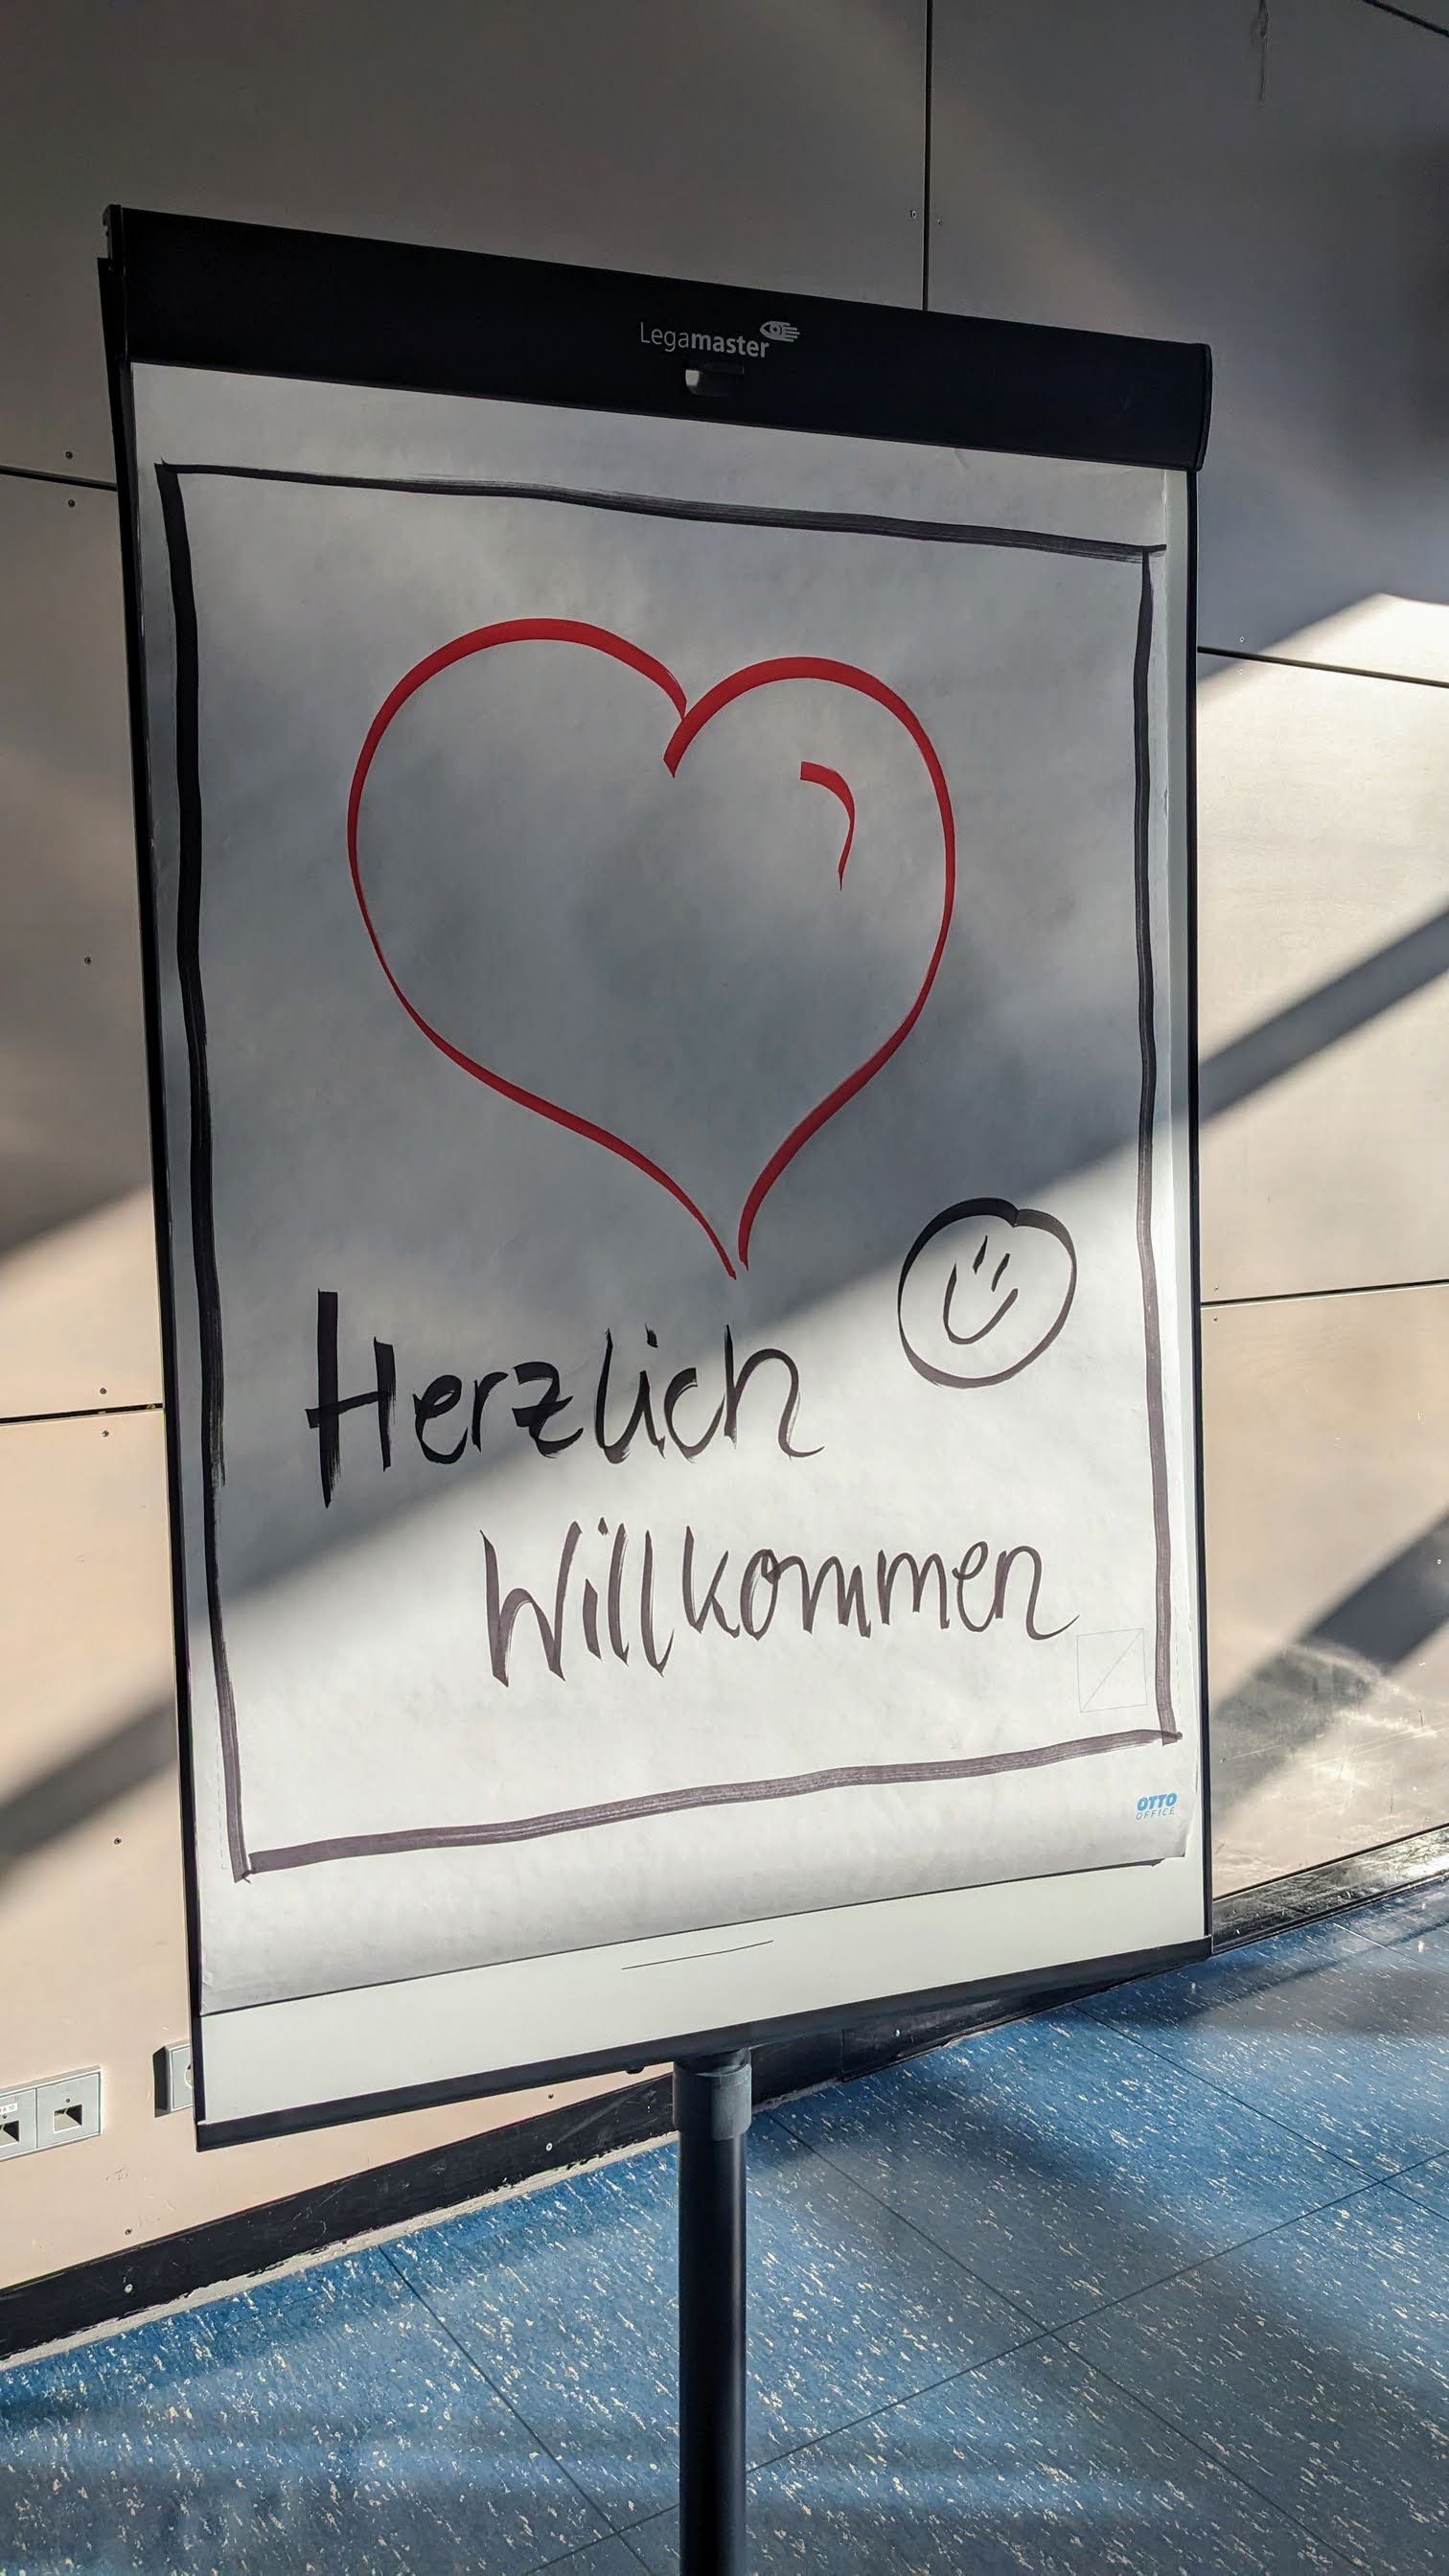 Legamaster
Herzlich
Willkommen
OTTO
OFFICE